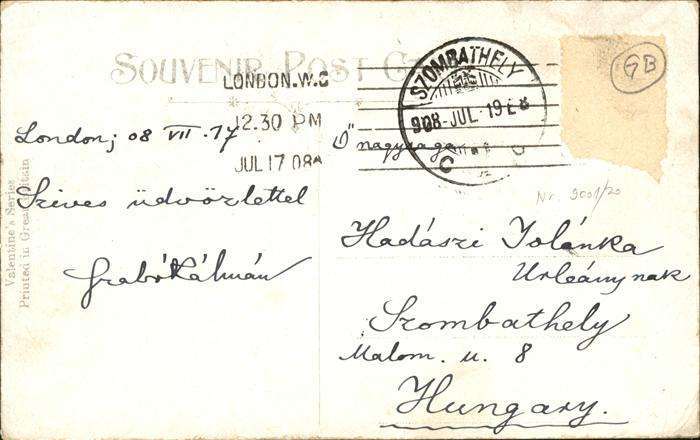 SOUVENIR POST
LONDON.W.C
12.30 PM
JUL 17 08
SZOMBATHELY
908-JUL-19
C
GB
London; 08 VII. 17
Szives üdvözlettel
Szabó Kálmán
Ő nagysága
Nr. 9001/20
Hadászi Jolánka
Urleánynak
Szombathely
Malom. u. 8
Hungary.
Valentine's Series
Printed in Great Britain